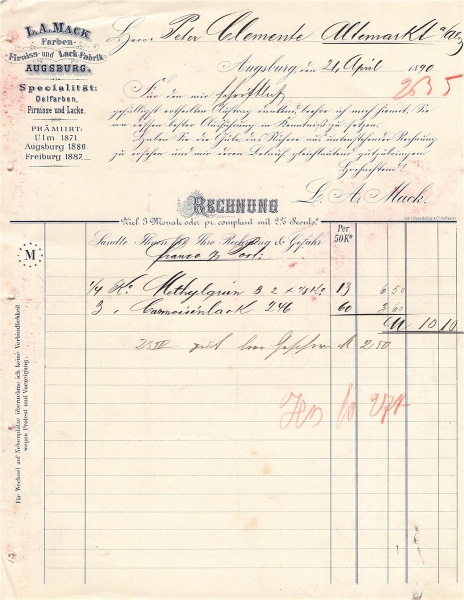 L. A. MACK
Farben-
Firniss- und Lack-Fabrik
AUGSBURG.
Specialität:
Oelfarben,
Firnisse und Lacke.
PRÄMIIRT:
Ulm 1871.
Augsburg 1886.
Freiburg 1887.
Herrn Peter Clemente Altemarkt a/Alz
Augsburg, den 21. April 1890
2635
Für den mir schriftlich
gefälligst ertheilten Auftrag dankend, beehre ich mich hiermit, Sie
von dessen bester Ausführung in Kenntniß zu setzen.
Haben Sie die Güte, das Nähere aus untenstehender Rechnung
zu ersehen und mir deren Betrag gleichlautend gutzubringen.
Hochachtend!
L. A. Mack.
RECHNUNG
Ziel 3 Monate oder pr. comptant mit 2% Sconto.
Per
50K.
Sandte Ihnen für Ihre Rechnung & Gefahr
franco pr Post:
M
1/4 Ko. Methylgrün B 2 x 13 6 50
3 " Carmoisinlack 246 60 3 60
M 10 10
2 50
Für Wechsel auf Nebenplätze übernehme ich keine Verbindlichkeit
wegen Protest und Vorzeigung.